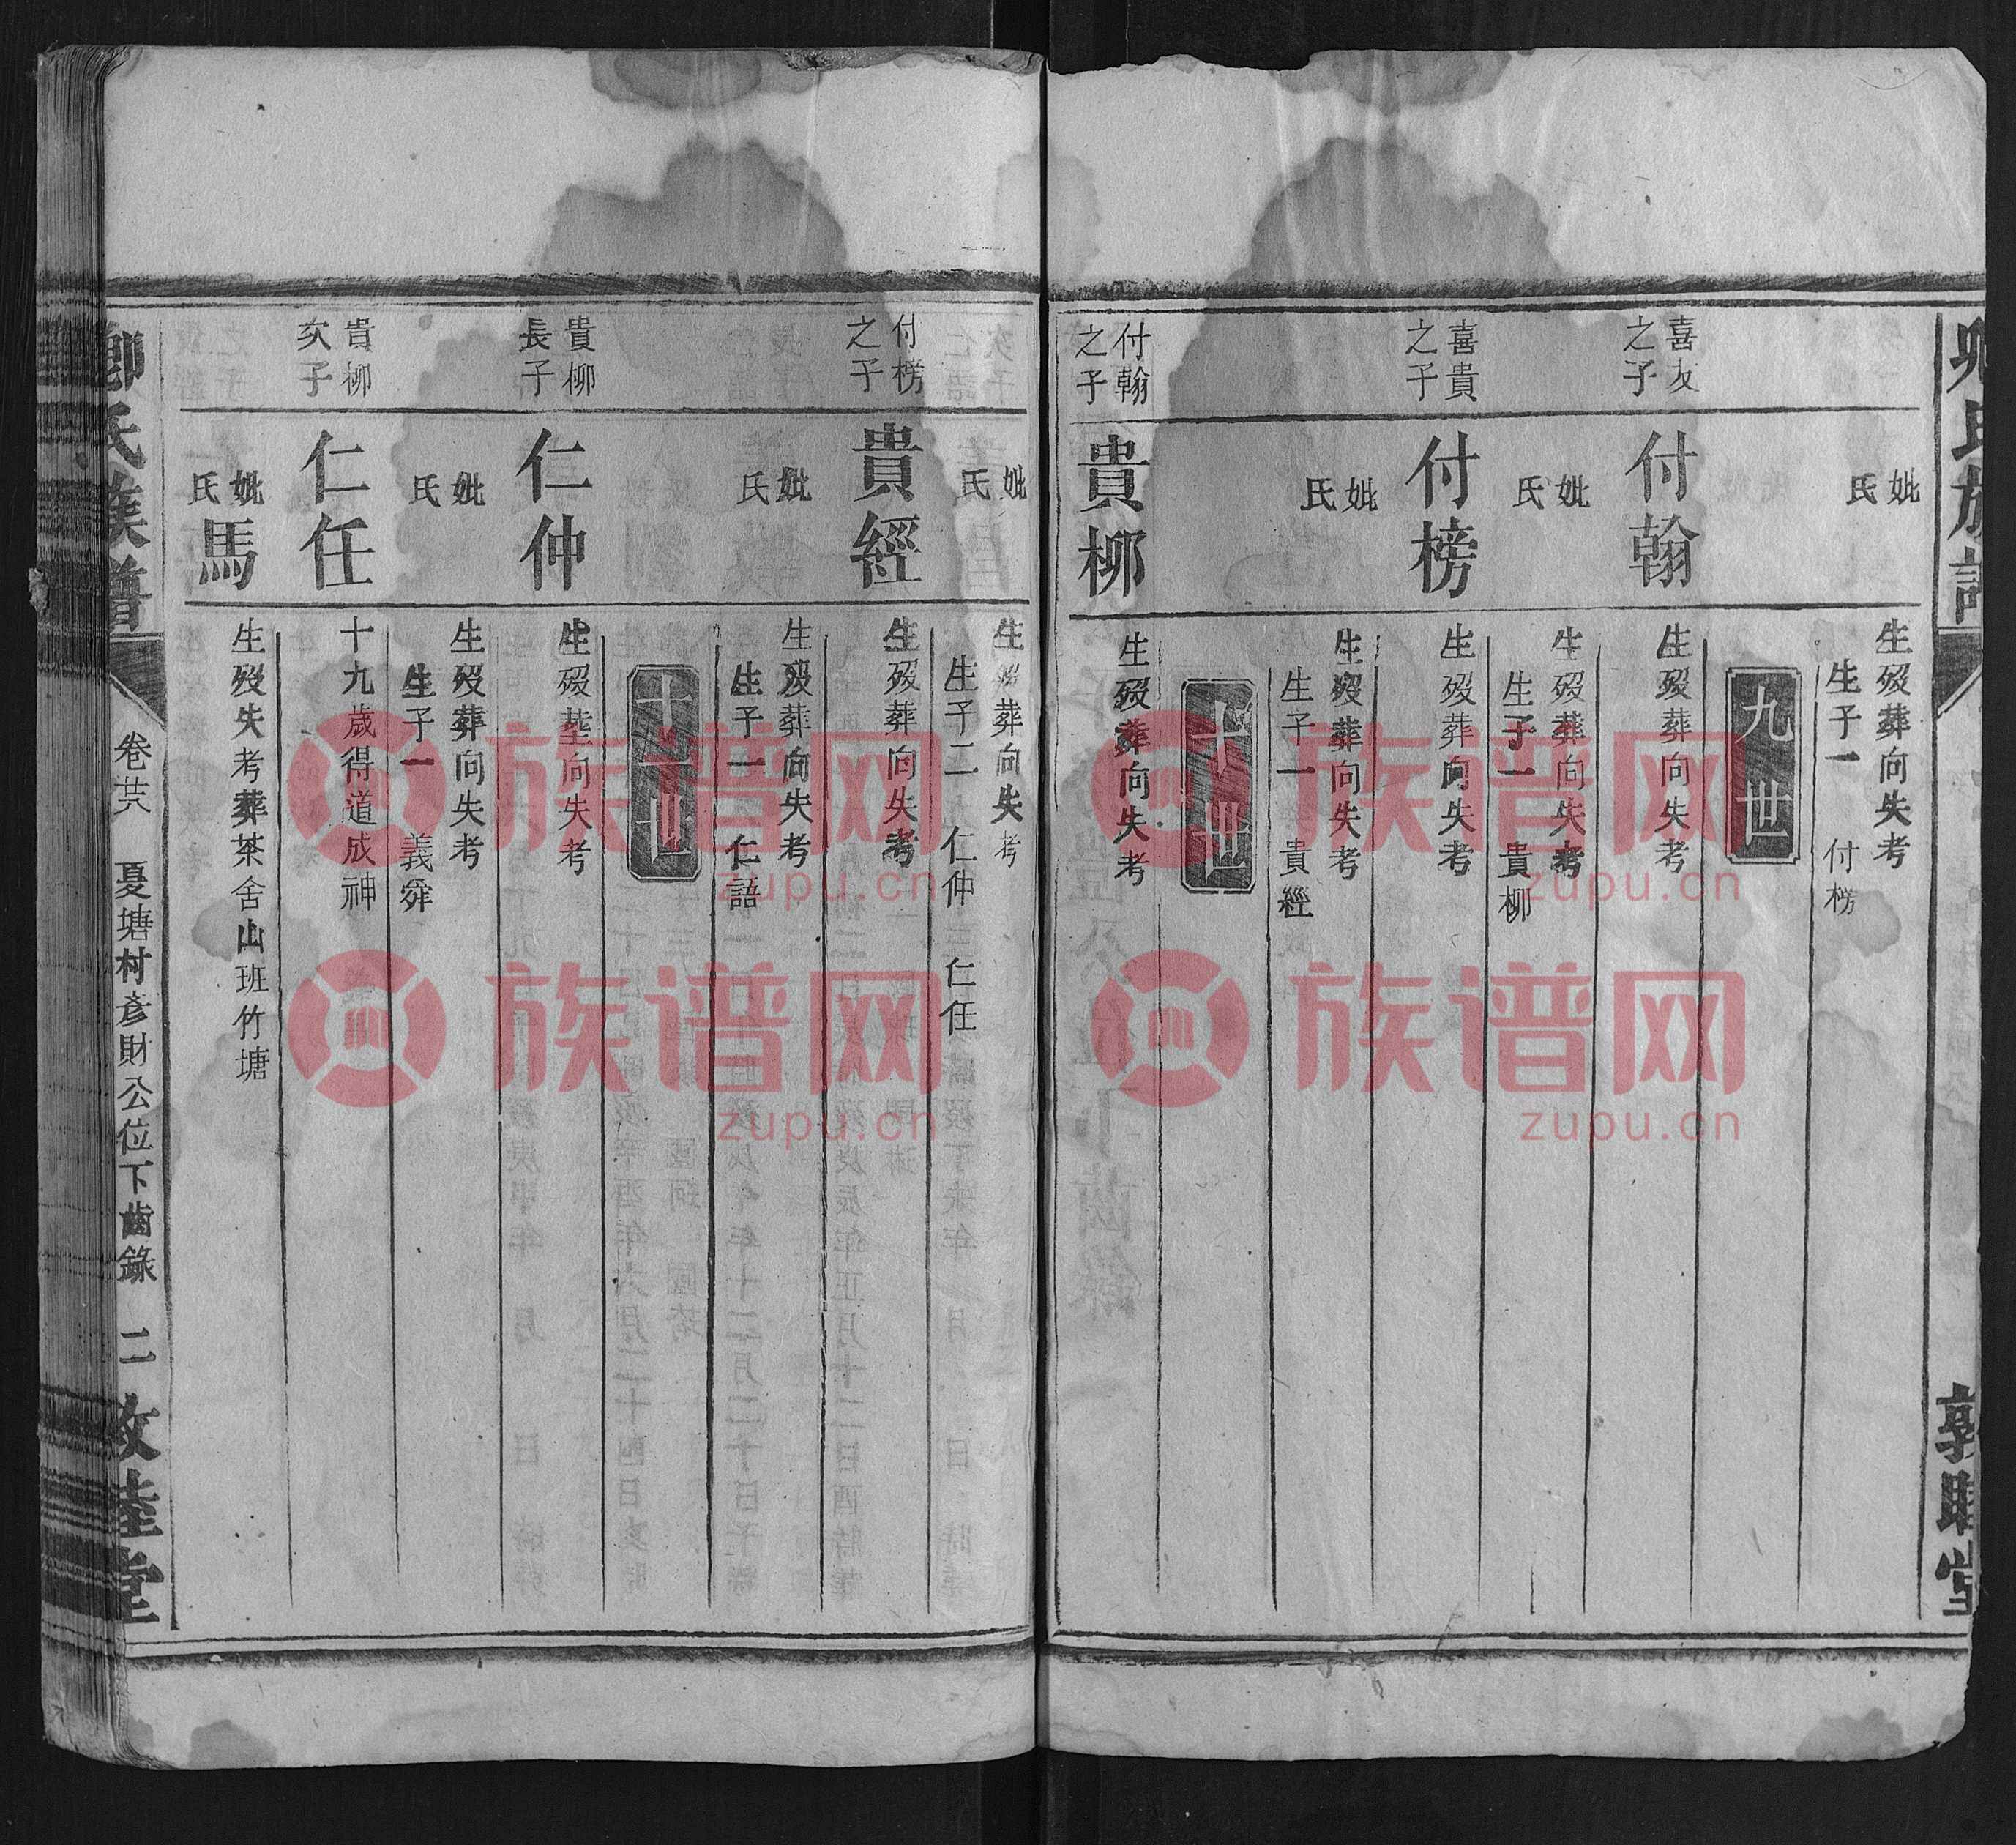 妣
氏
生殁葬向失考
生子一　付榜
九世
喜友
之子
付翰
生殁葬向失考
妣
氏
生殁葬向失考
生子一　貴柳
喜貴
之子
付榜
生殁葬向失考
妣
氏
生殁葬向失考
生子一　貴經
十世
付翰
之子
貴柳
生殁葬向失考
敦睦堂
妣
氏
生殁葬向失考
生子二　仁仲　仁任
付榜
之子
貴經
生殁葬向失考
妣
氏
生殁葬向失考
生子一　仁語
十一世
貴柳
長子
仁仲
生殁塟向失考
妣
氏
生殁葬向失考
生子一　義舜
貴柳
次子
仁任
十九歲得道成神
妣
氏
馬
生殁失考葬茶舍山班竹塘
氏族譜
卷廿八　夏塘村彥財公位下齒錄　二
敦睦堂
族谱网
zupu.cn
族谱网
zupu.cn
族谱网
zupu.cn
族谱网
zupu.cn